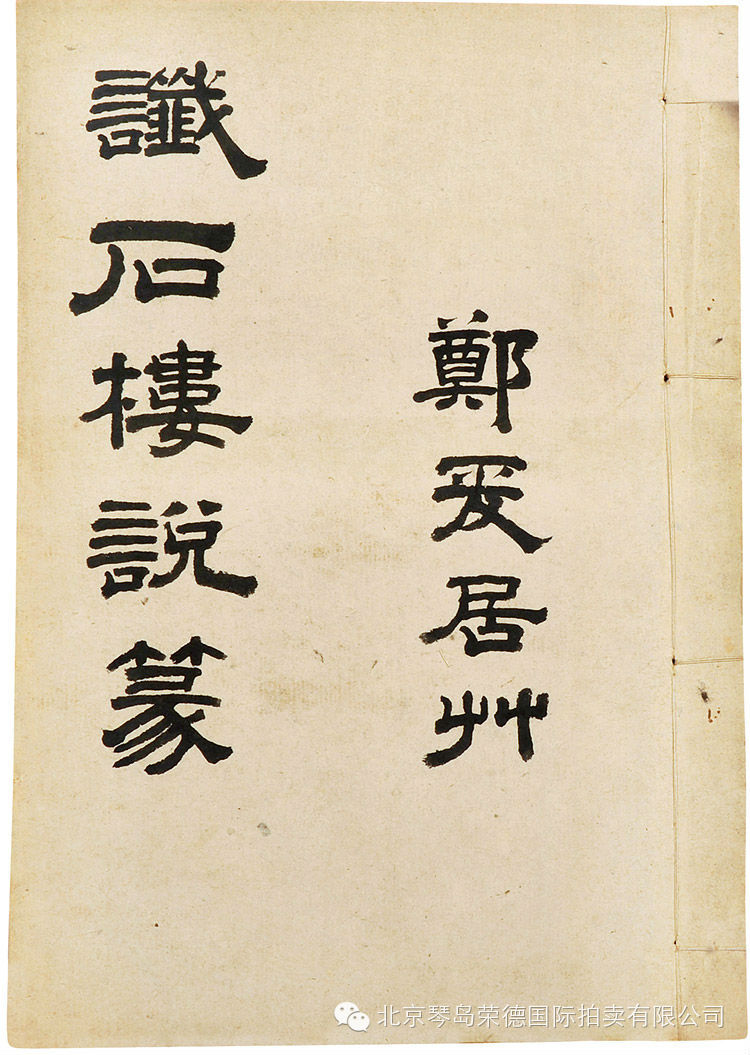 鄭爰居艸
讖石樓說篆
北京琴岛荣德国际拍卖有限公司